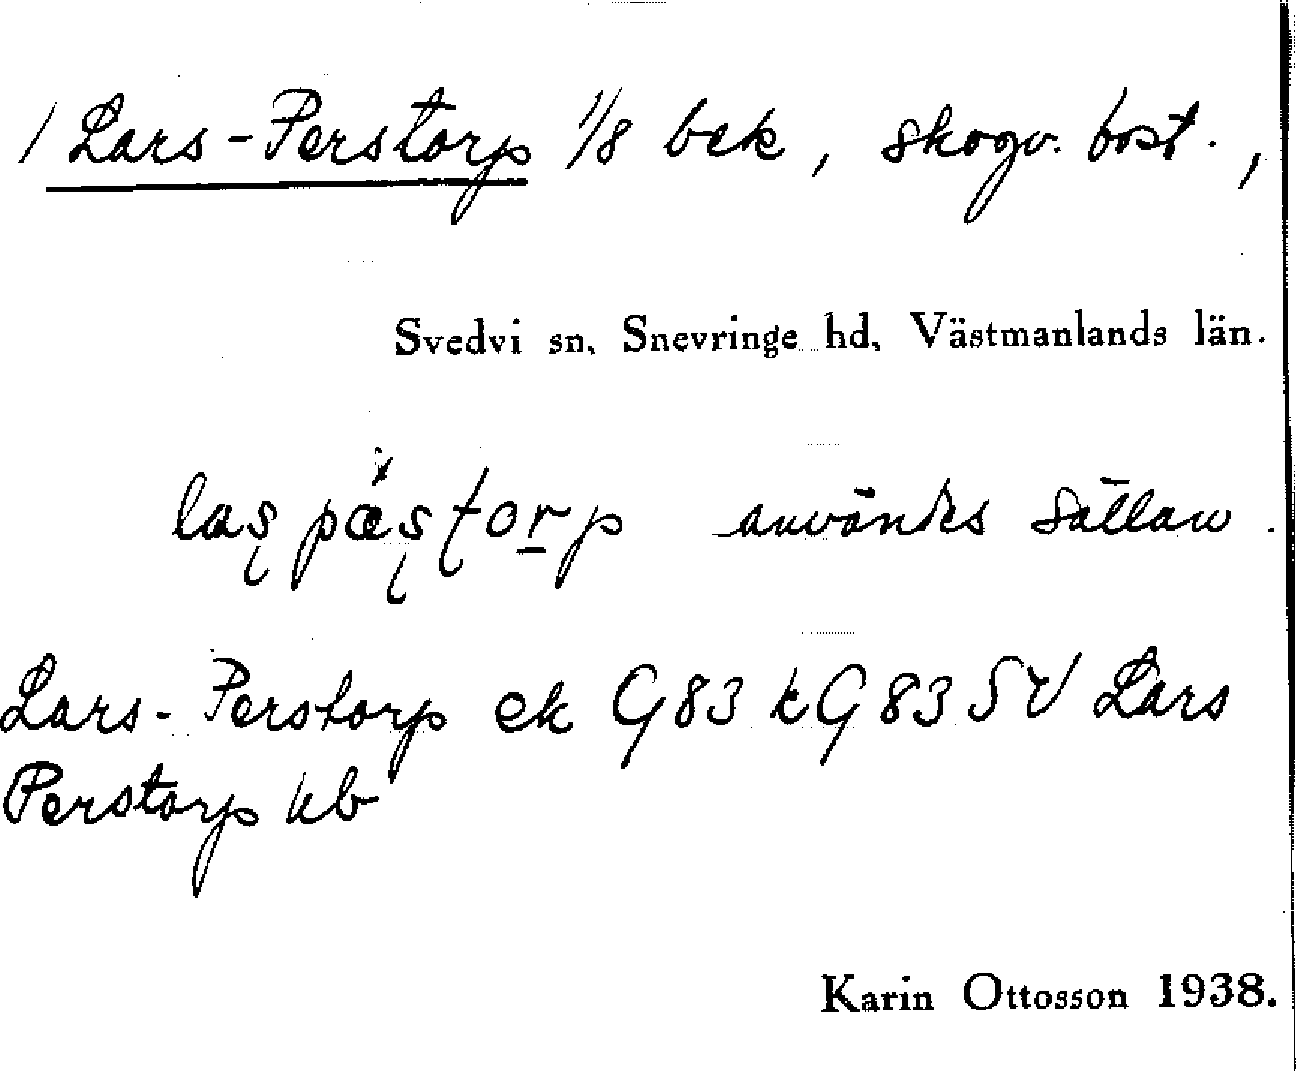 1 Lars-Perstorp 1/8 bek, skogv. bost.,
Svedvi sn, Snevringe hd, Västmanlands län.
las pæstorp användes sällan.
Lars-Perstorp ek G83 k G83 SV Lars
Perstorp kb
Karin Ottosson 1938.